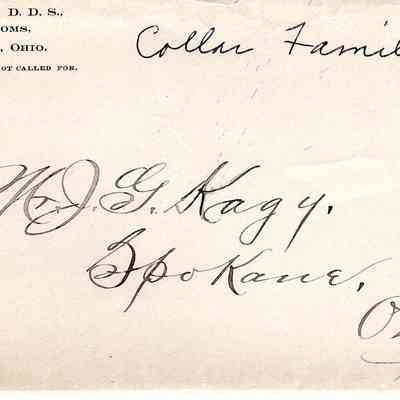 D. D. S.,
OMS,
, OHIO.
OT CALLED FOR.
Collar Famil
Mr. J. G. Kagy.
Spokane,
O